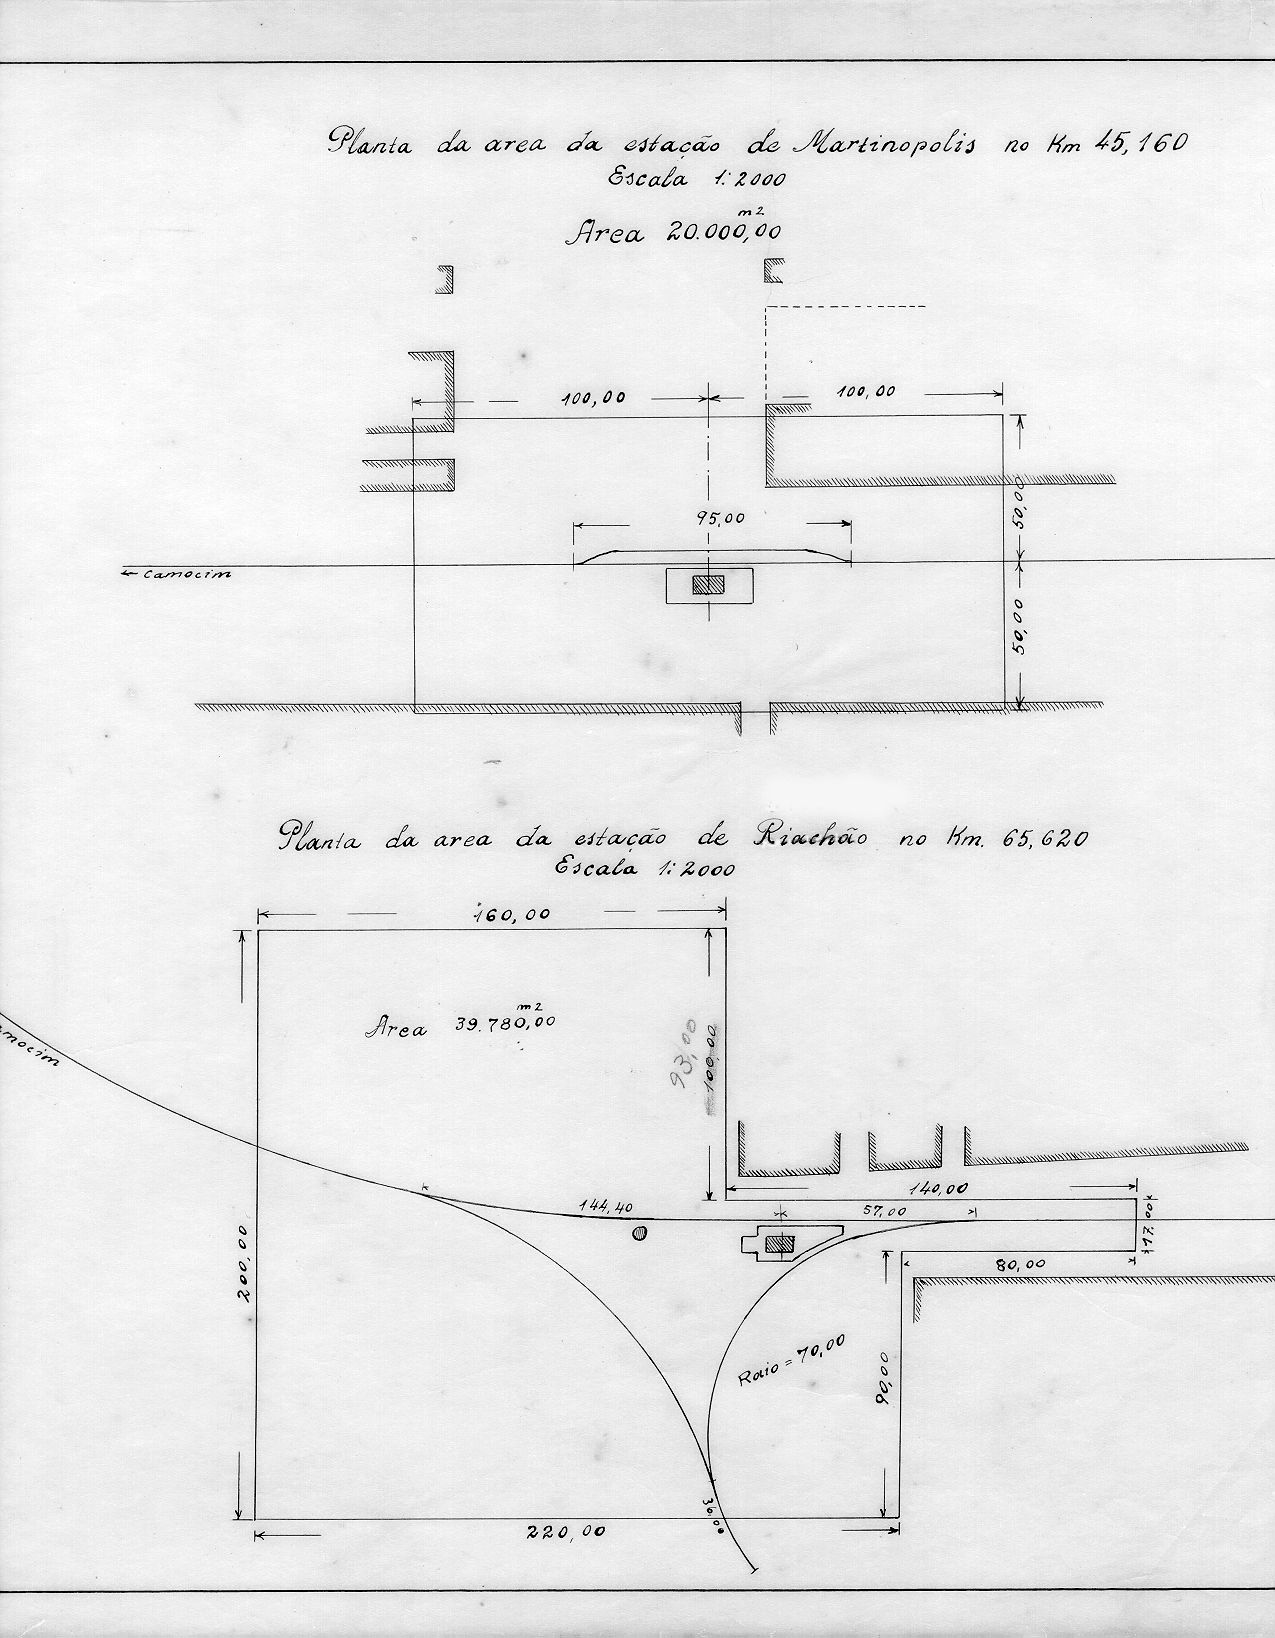 Planta da area da estação de Martinopolis no Km 45,160
Escala 1:2000
Area 20.000,00 m2
100,00
100,00
95,00
50,00
← Camocim
50,00
Planta da area da estação de Riachão no Km. 65,620
Escala 1:2000
160,00
Area 39.780,00 m2
93,00
100,00
amocim
140,00
144,40
57,00
17,00
200,00
80,00
Raio = 70,00
90,00
36,00
220,00